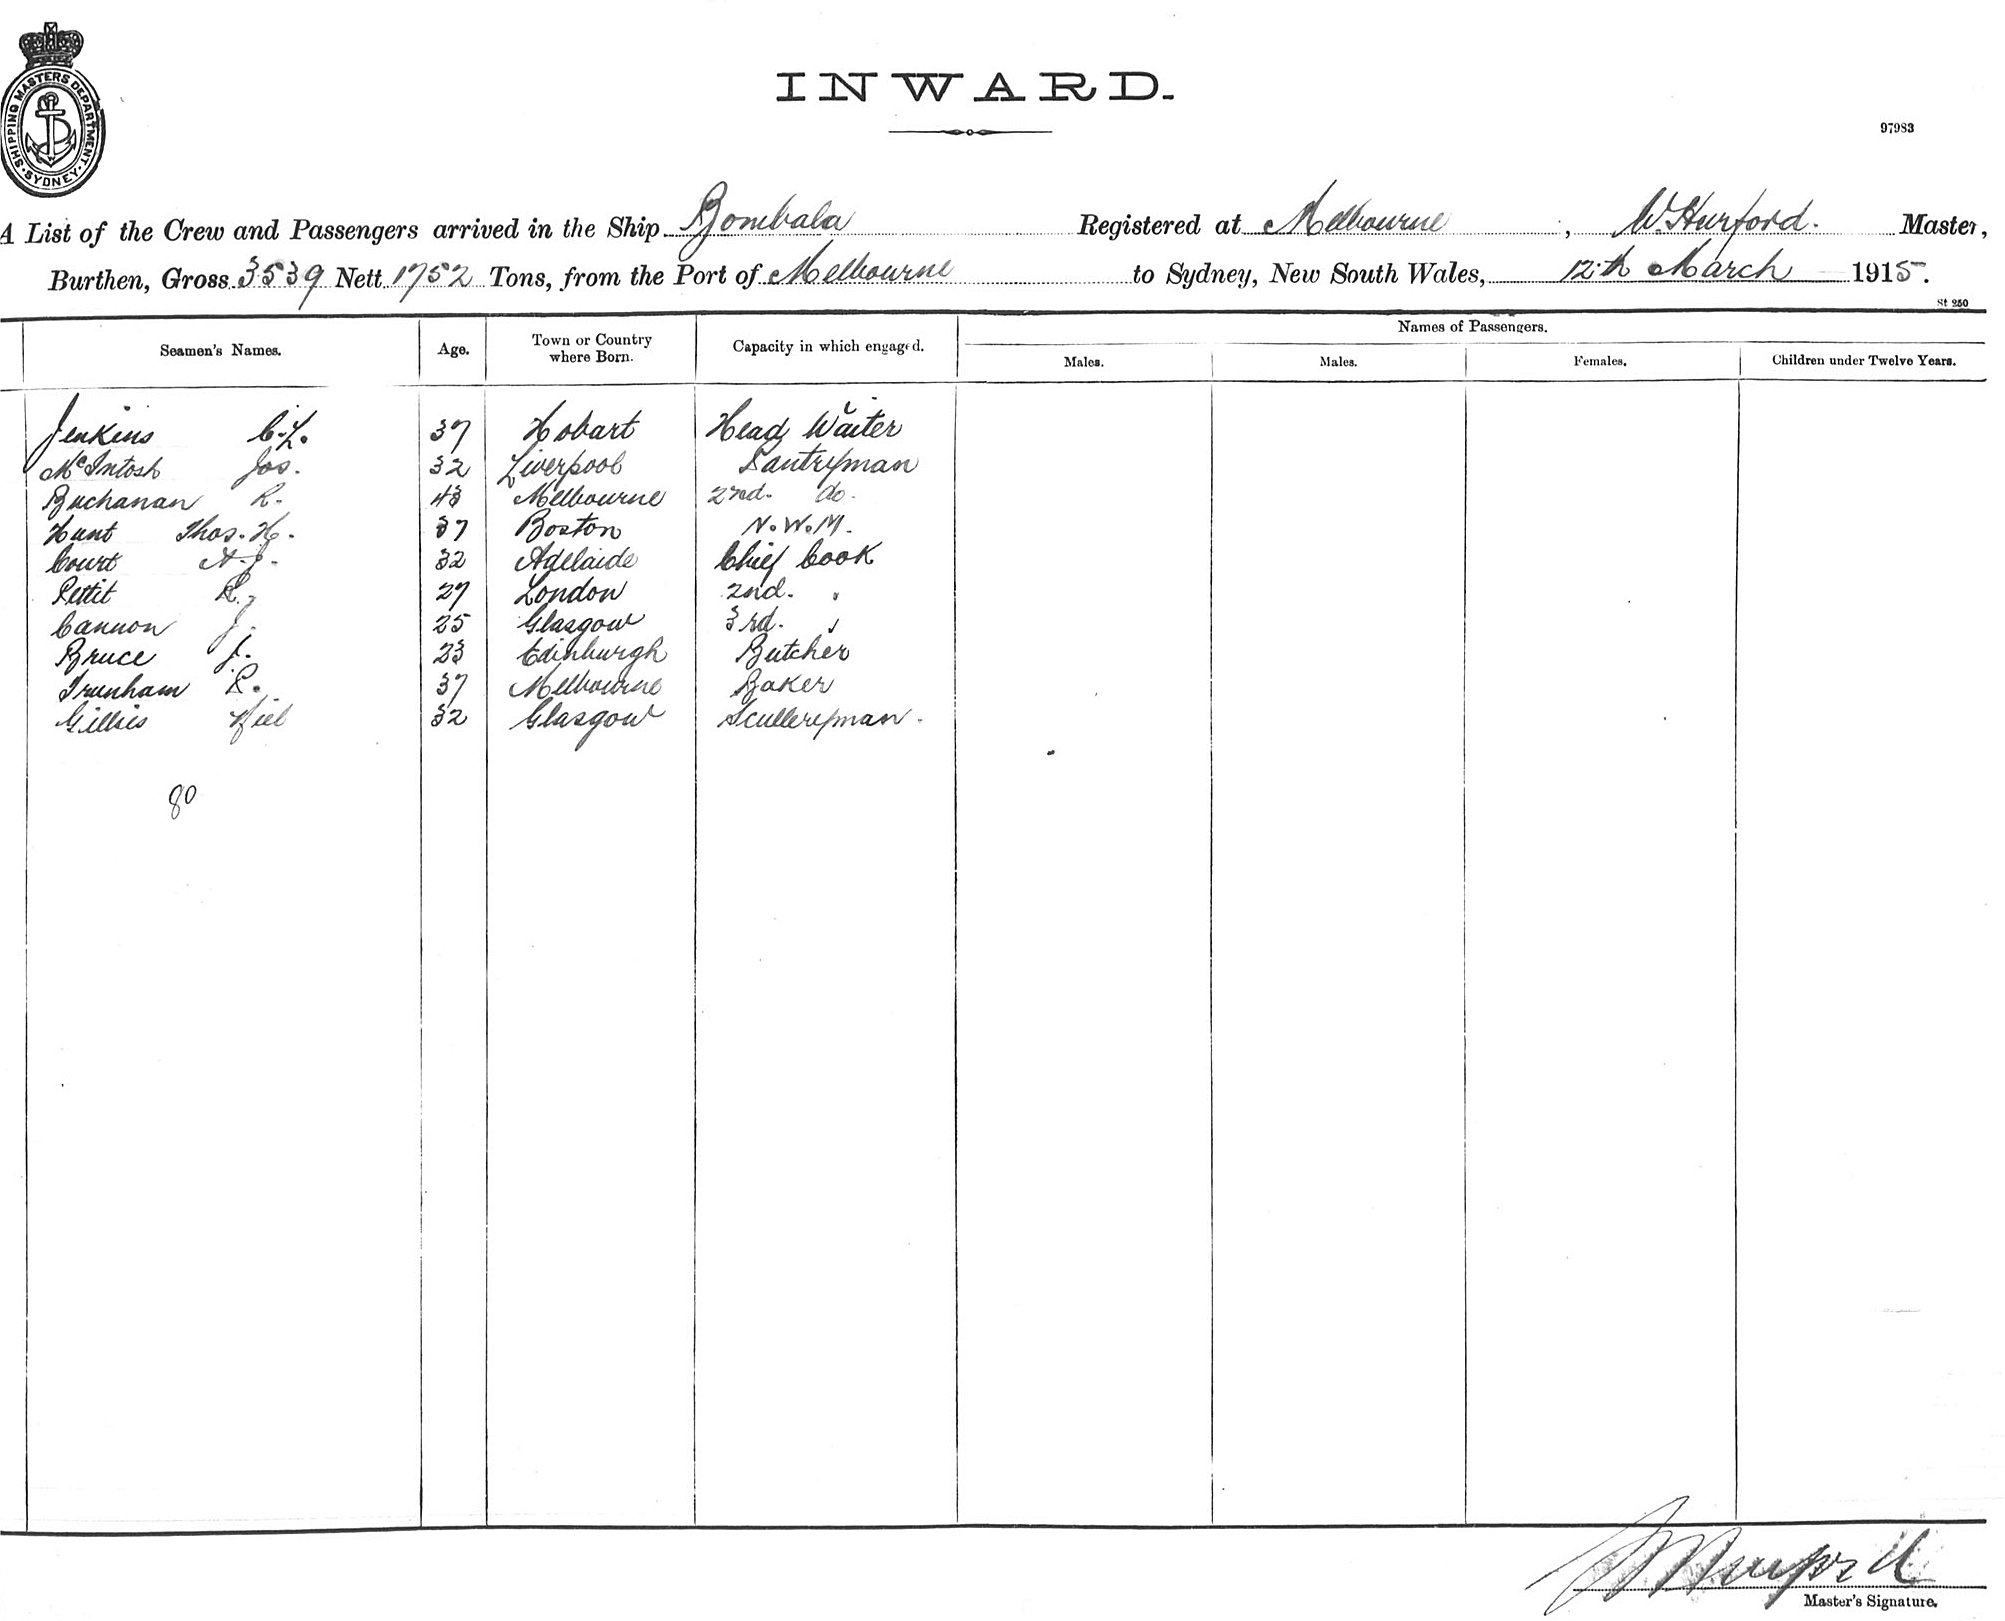 SHIPPING MASTERS DEPARTMENT. SYDNEY.
INWARD.
97983
A List of the Crew and Passengers arrived in the Ship Bombala Registered at Melbourne, W. Hurford. Master,
Burthen, Gross 3539 Nett 1752 Tons, from the Port of Melbourne to Sydney, New South Wales, 12th March 1915.
St 250
Seamen's Names. Age. Town or Country where Born. Capacity in which engaged. Names of Passengers.
Males. Males. Females. Children under Twelve Years.
Jenkins C.L. 37 Hobart Head Waiter
McIntosh Jos. 32 Liverpool Pantryman
Buchanan R. 43 Melbourne 2nd. do.
Hunt Thos. H. 37 Boston N.W.M.
Court A.J. 32 Adelaide Chief Cook
Pettit R. 27 London 2nd. "
Cannon J. 25 Glasgow 3rd. "
Bruce J. 23 Edinburgh Butcher
Trunham R. 37 Melbourne Baker
Gillies Niel 32 Glasgow Sculleryman.
80
Master's Signature.